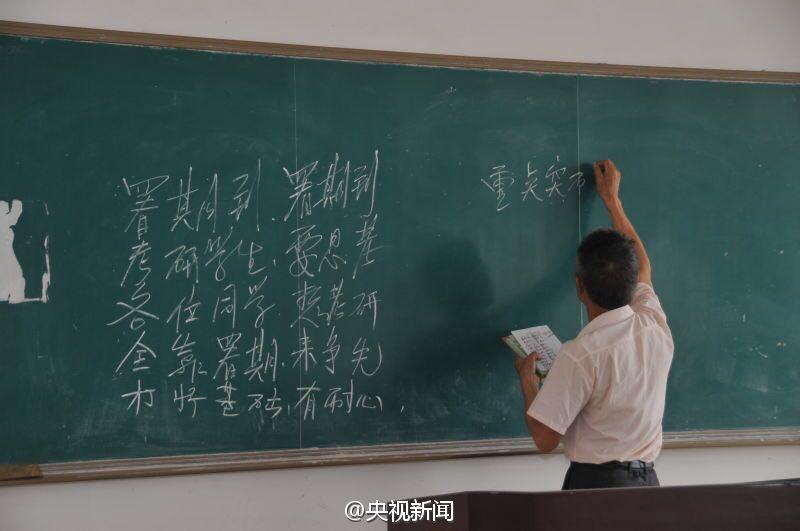 署期到.署期到
考研学生.要思基
各位同学 考研
全靠署期.来争先
打好基础.有耐心,
重点
@央视新闻